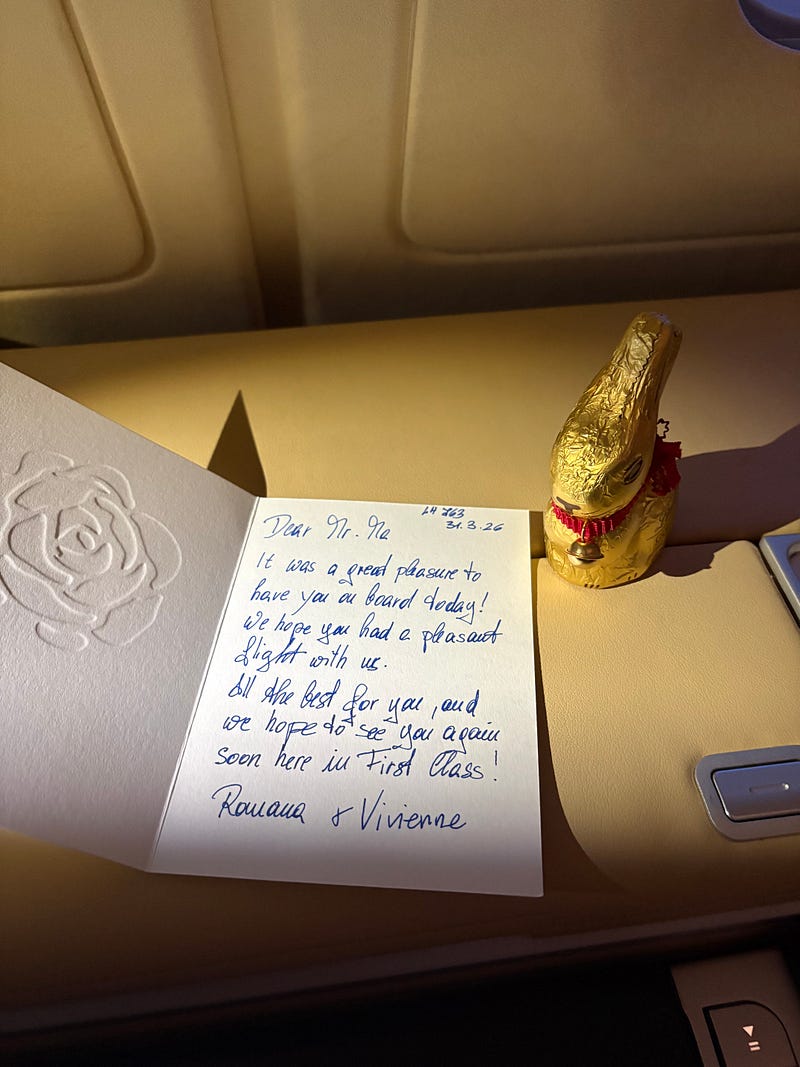 LH 763
31.3.26
Dear Mr. Ma
It was a great pleasure to
have you on board today!
We hope you had a pleasant
flight with us.
All the best for you, and
we hope to see you again
soon here in First Class!
Romana & Vivienne